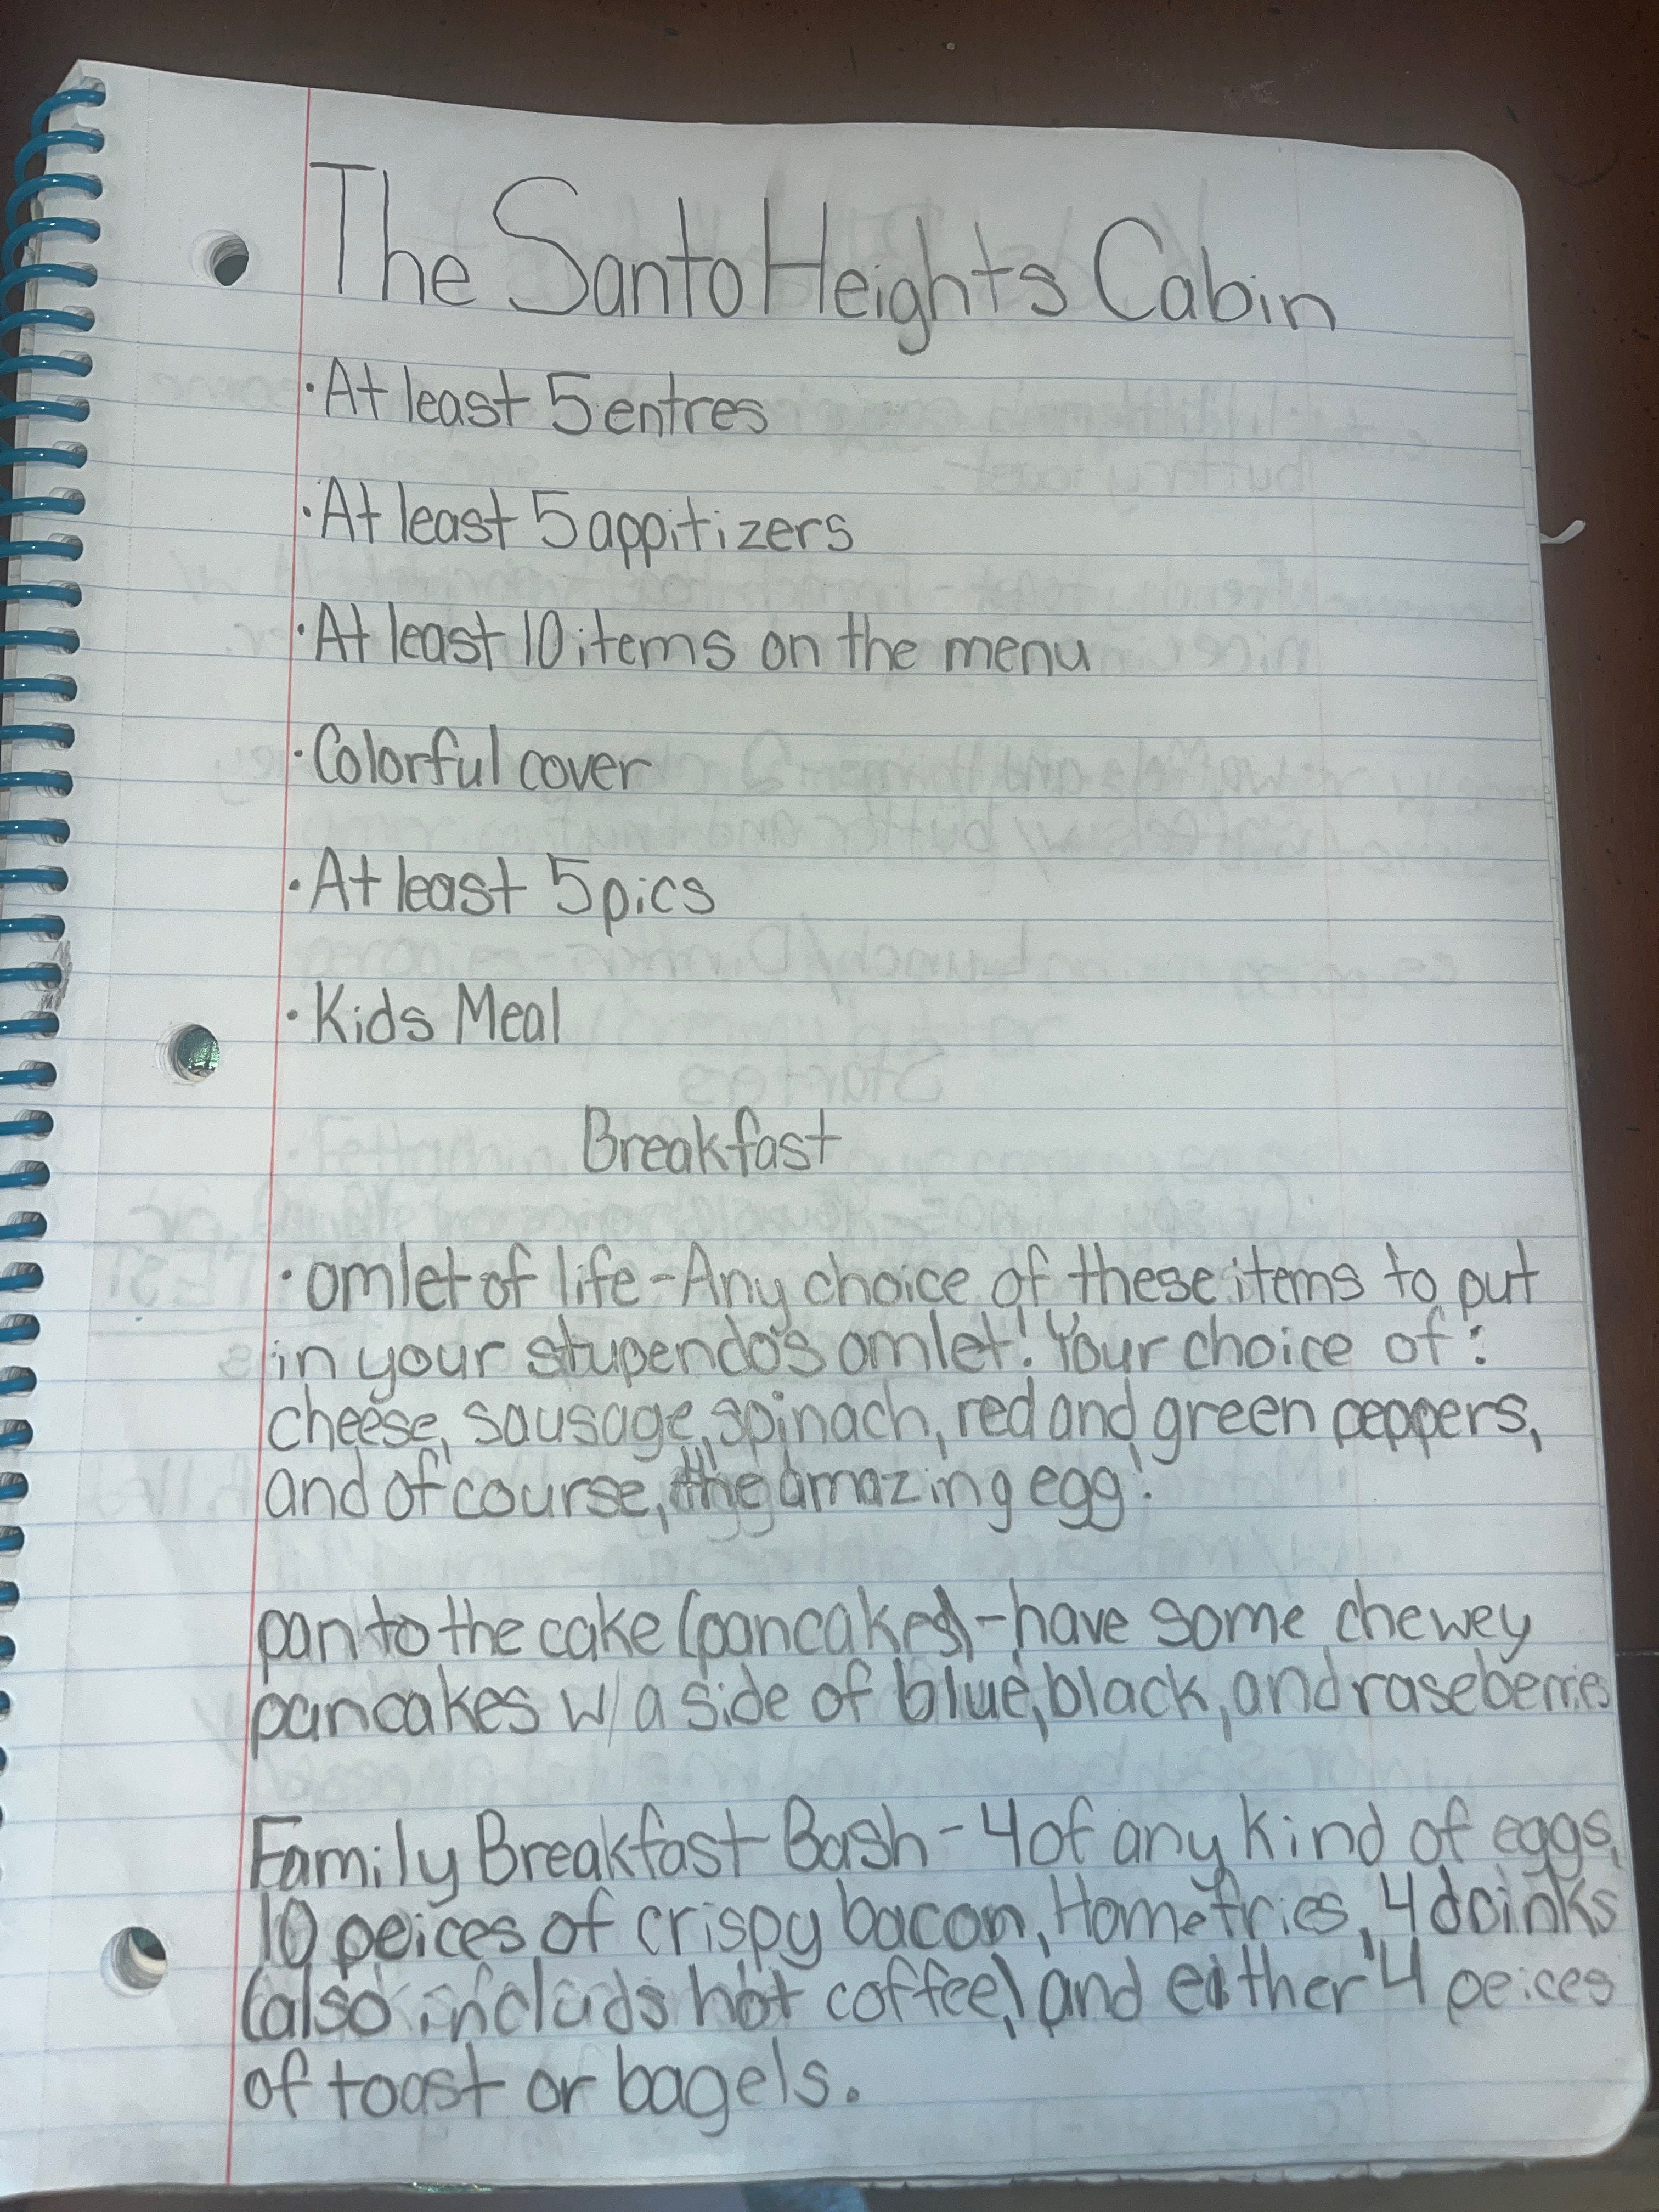 The Santo Heights Cabin
·At least 5 entres
·At least 5 appitizers
·At least 10 items on the menu
·Colorful cover
·At least 5 pics
·Kids Meal
Breakfast
·omlet of life-Any choice of these items to put
in your stupendo's omlet! Your choice of:
cheese, sausage, spinach, red and green peppers,
and of course, the amazing egg!
pan to the cake (pancakes)-have some chewey
pancakes w/ a side of blue, black, and raseberries
Family Breakfast Bash-4 of any kind of eggs,
10 peices of crispy bacon, Home fries, 4 drinks
(also includs hot coffee), and either 4 peices
of toast or bagels.